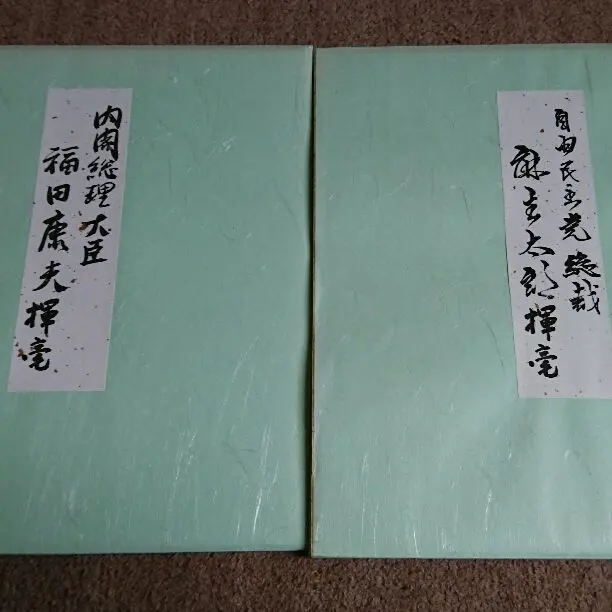 内閣総理大臣
福田康夫揮毫
自由民主党総裁
麻生太郎揮毫